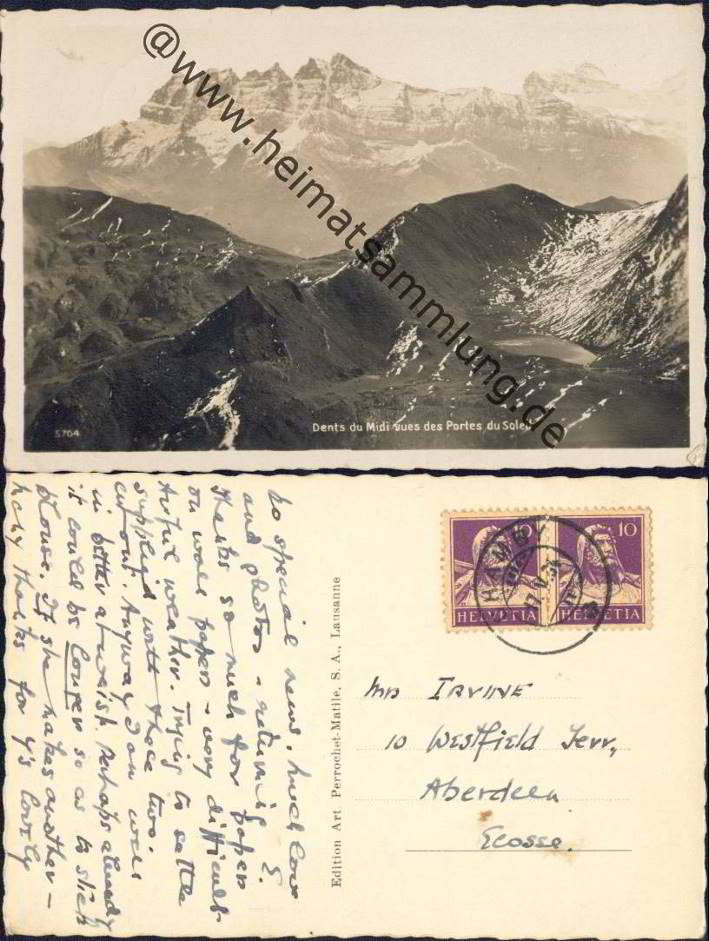 @www.heimatsammlung.de
5704
Dents du Midi vues des Portes du Soleil
Many thanks for y's lovely
blouse. If she makes another –
it could be longer so as to stick
in better at waist. Perhaps already
cut out. Anyway I am well
supplied with these two.
Awful weather. Trying to settle
on wall paper – very difficult.
Thanks so much for paper
and photos – returning
No special news, much love
E.
Edition Art Perrochet-Matile, S. A., Lausanne
10 10
HELVETIA HELVETIA
Mrs IRVINE
10 Westfield Terr,
Aberdeen
Ecosse.